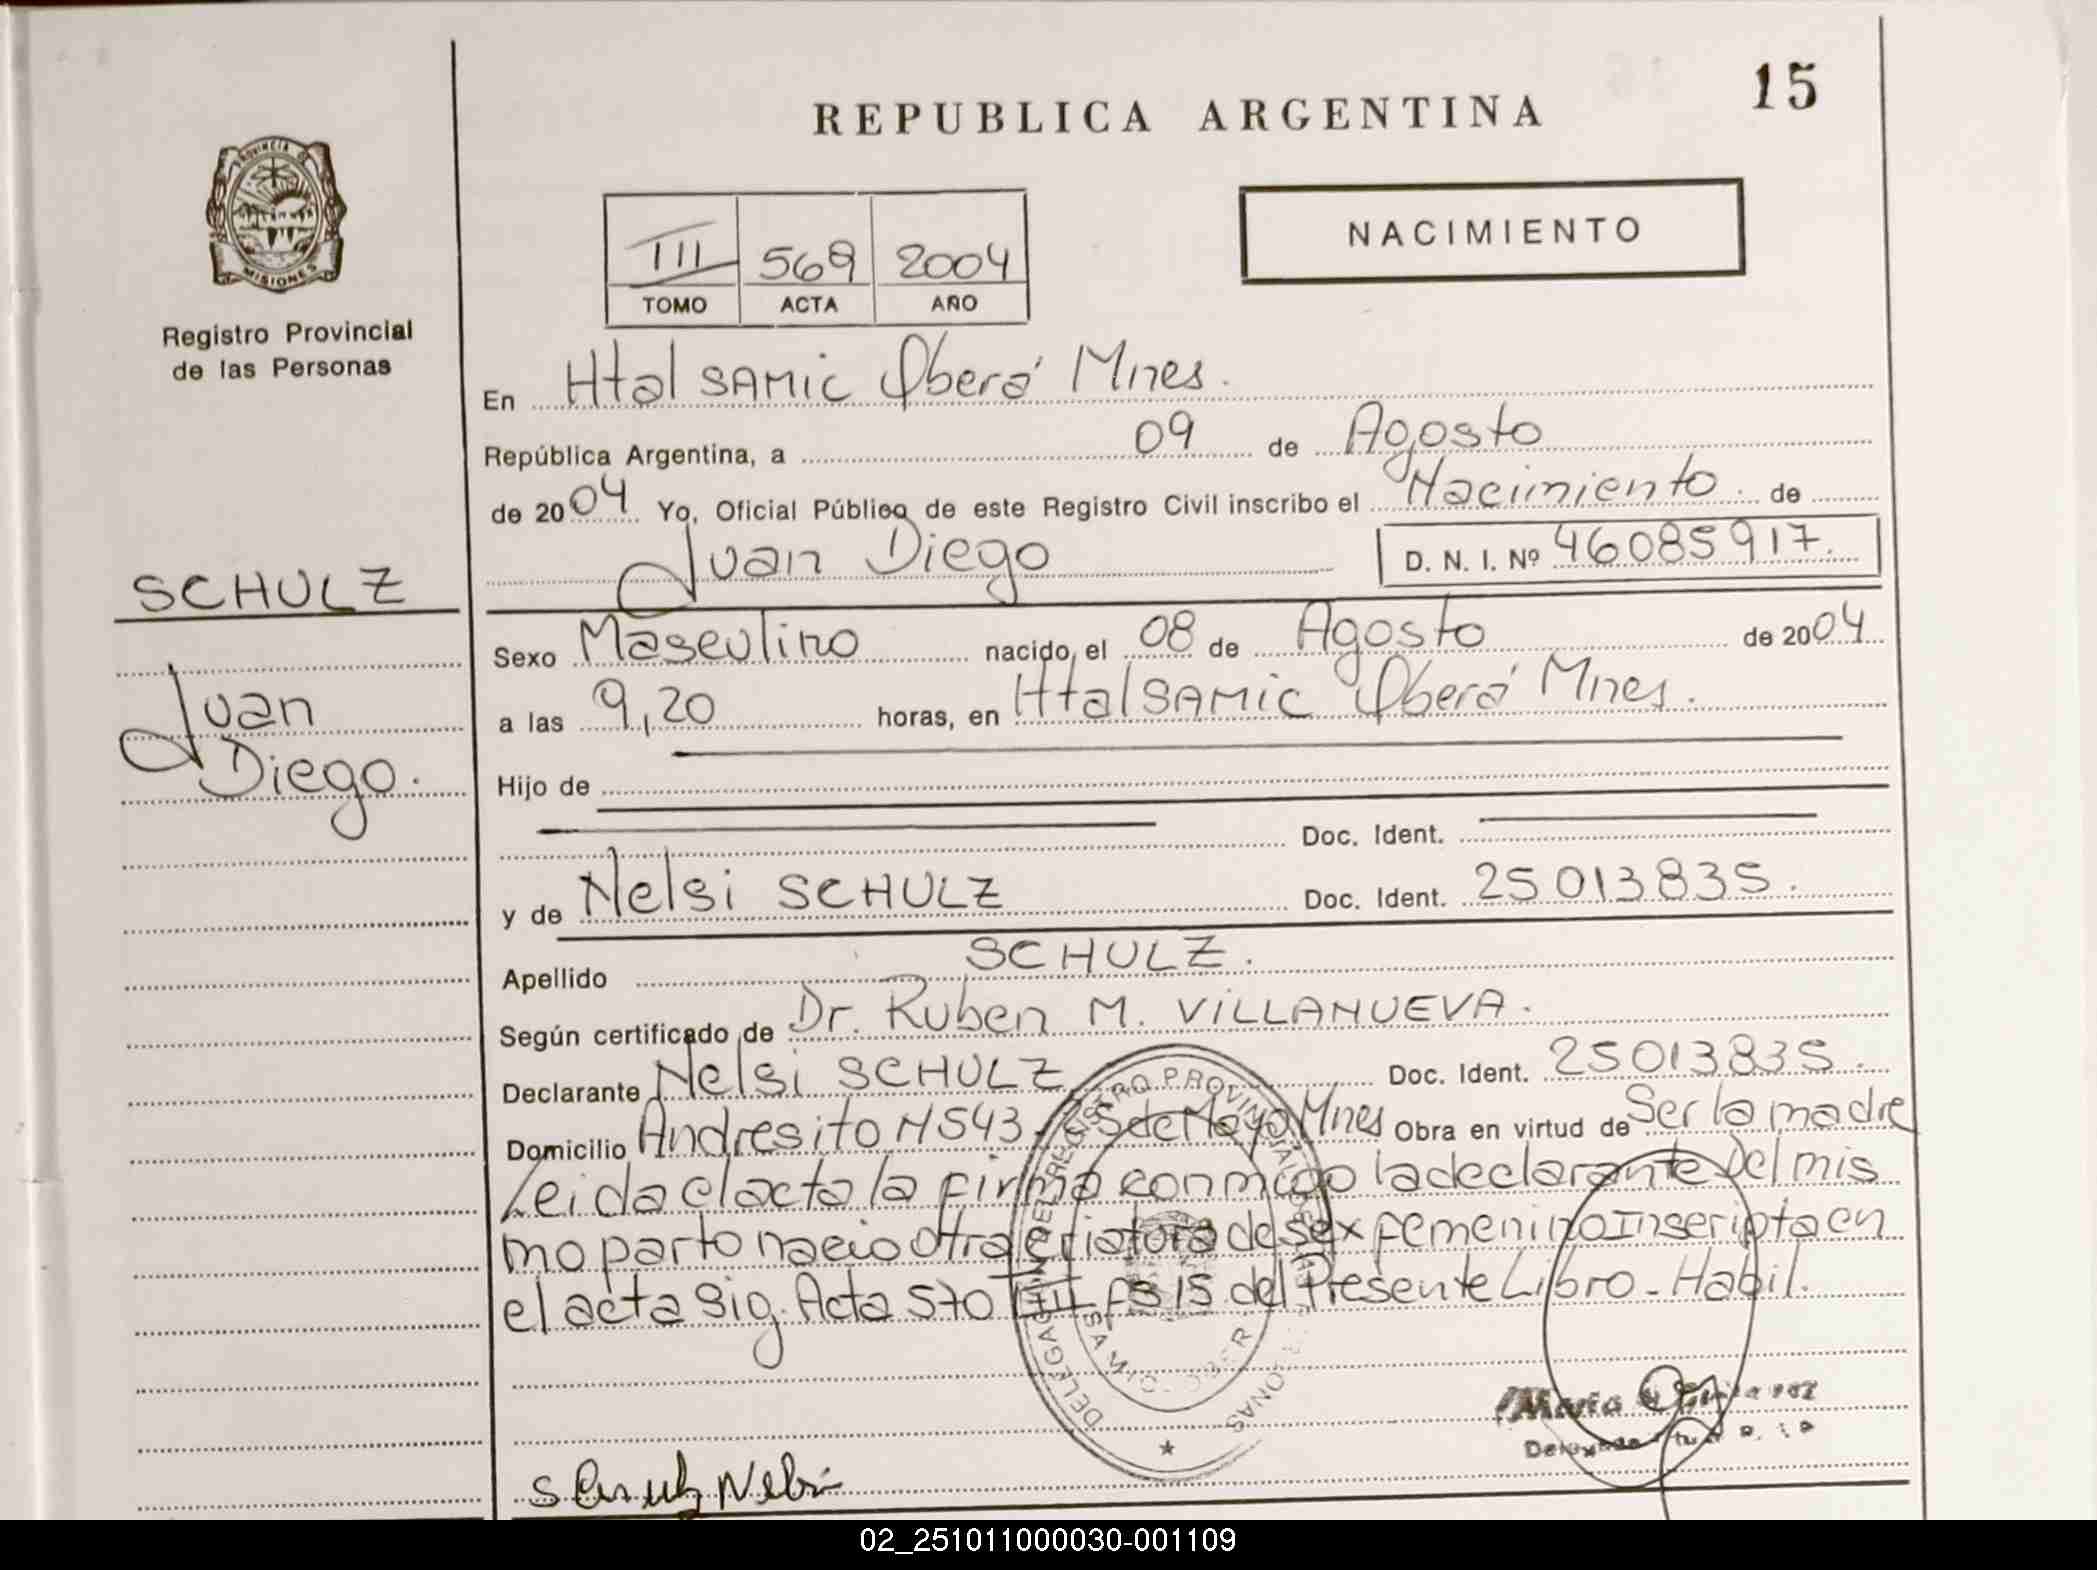 15
REPUBLICA ARGENTINA
PROVINCIA DE
MISIONES
Registro Provincial
de las Personas
NACIMIENTO
III 569 2004
TOMO ACTA AÑO
En Htal SAMIC Oberá Mnes.
República Argentina, a 09 de Agosto
de 2004 Yo, Oficial Público de este Registro Civil inscribo el Nacimiento. de
Juan Diego D. N. I. Nº 46085917.
SCHULZ
Juan
Diego.
Sexo Masculino nacido el 08 de Agosto de 2004
a las 9,20 horas, en Htal SAMIC Oberá Mnes.
Hijo de
Doc. Ident.
y de Nelsi SCHULZ Doc. Ident. 25013835.
Apellido SCHULZ.
Según certificado de Dr. Ruben M. VILLANUEVA.
Declarante Nelsi SCHULZ Doc. Ident. 25013835.
Domicilio Andresito N543 - 25 de Mayo Mnes Obra en virtud de Ser la madre
Leida el acta la firma conmigo la declarante Del mis
mo parto nacio otra criatura de sex femenino Inscripta en
el acta sig. Acta 570 TIII fs 15 del Presente Libro - Habil.
DELEGACION DEL REGISTRO PROVINCIAL DE LAS PERSONAS
SAMIC - OBERA
Maria
Schulz Nelsi
02_251011000030-001109